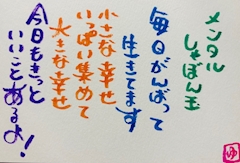 メンタル
しゃぼん玉
毎日がんばって
生きてます
小さな幸せ
いっぱい集めて
大きな幸せ
今日もきっと
いいことあるよ!
ゆ